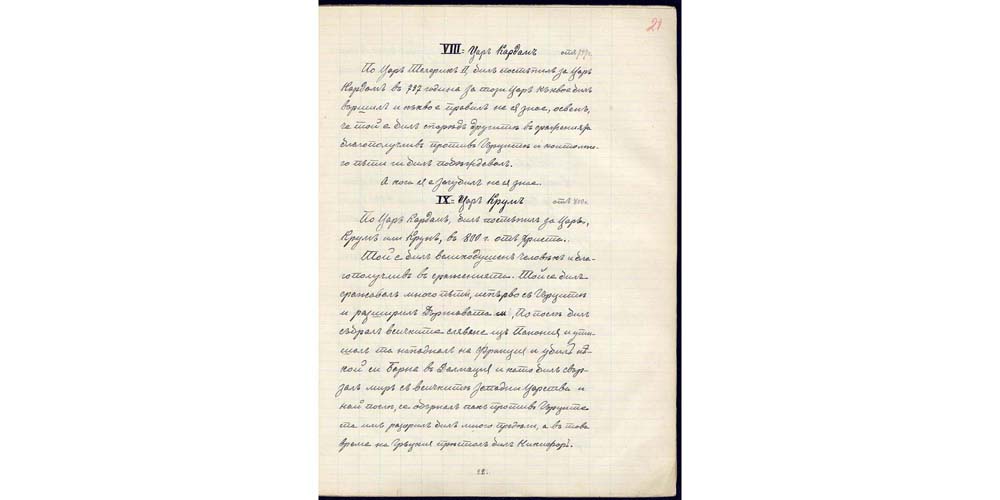 21
VIII = Царъ Кардамъ отъ 797г.
По Царъ Телерикъ II, билъ постѫпилъ за Царъ
Кардамъ въ 797 година за този Царъ какво е билъ
вършилъ и какво е правилъ не ся знае, освенъ,
че той е билъ споредъ другитѣ въ сраженията
благополучливъ противъ Гърцитѣ и
го пѫти ги билъ побѣдевалъ.
А кога ся е загубилъ не ся знае.
IX = Царъ Крумъ отъ 800г.
По Царъ Кардамъ, билъ постѫпилъ за Царъ,
Крумъ или Крунъ, въ 800 г. отъ Христа.
Той е билъ великодушенъ человѣкъ и бла-
гополучливъ въ сраженията. Той се билъ
сражавалъ много пѫти, първо съ Гърцитѣ
и разширилъ Държавата си, По послѣ билъ
събралъ всичките славяне изъ Панония и оти-
шалъ та нападналъ на Франция и убилъ нѣ-
кой си Борна въ Далмация и като билъ свър-
залъ миръ съ всичкитѣ Западни Царства и
най послѣ, се обърналъ пакъ противъ Гърците
та имъ разорилъ билъ много предѣли, а въ това
време на Гръцкия прѣстолъ билъ Никифоръ.
12.